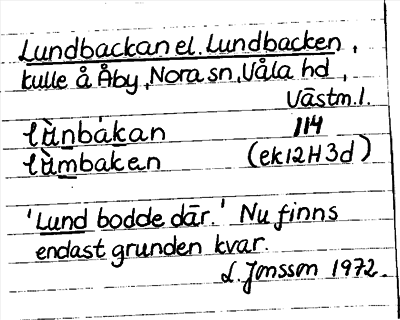 Lundbackan el. Lundbacken,
kulle å Åby, Nora sn, Våla hd,
Västm. l.
lùnbákan 114
lùmbaken (ek 12H 3d)
'Lund bodde där.' Nu finns
endast grunden kvar.
L. Jonsson 1972.